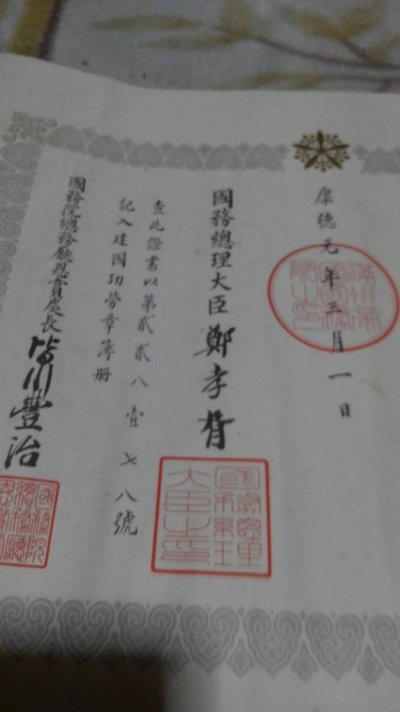 康德元年三月一日
國務總理大臣鄭孝胥
查此證書以第貳貳八壹七八號
記入建國功勞章簿冊
國務院總務廳恩賞處長皆川豐治
國務總理大臣之印